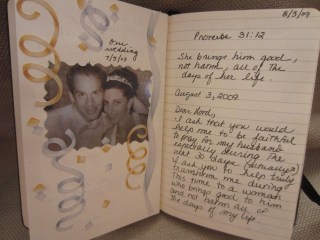 our
wedding
7/5/03
8/3/09
Proverbs 31:12
She brings him good,
not harm, all of the
days of her life.
August 3, 2009
Dear Lord,
I ask that you would
help me to be faithful
to pray for my husband
especially during the
next 30 days (
I ask you to help truly
transform me during
this time to a woman
who brings good to him
and not harm all of
the days of my life